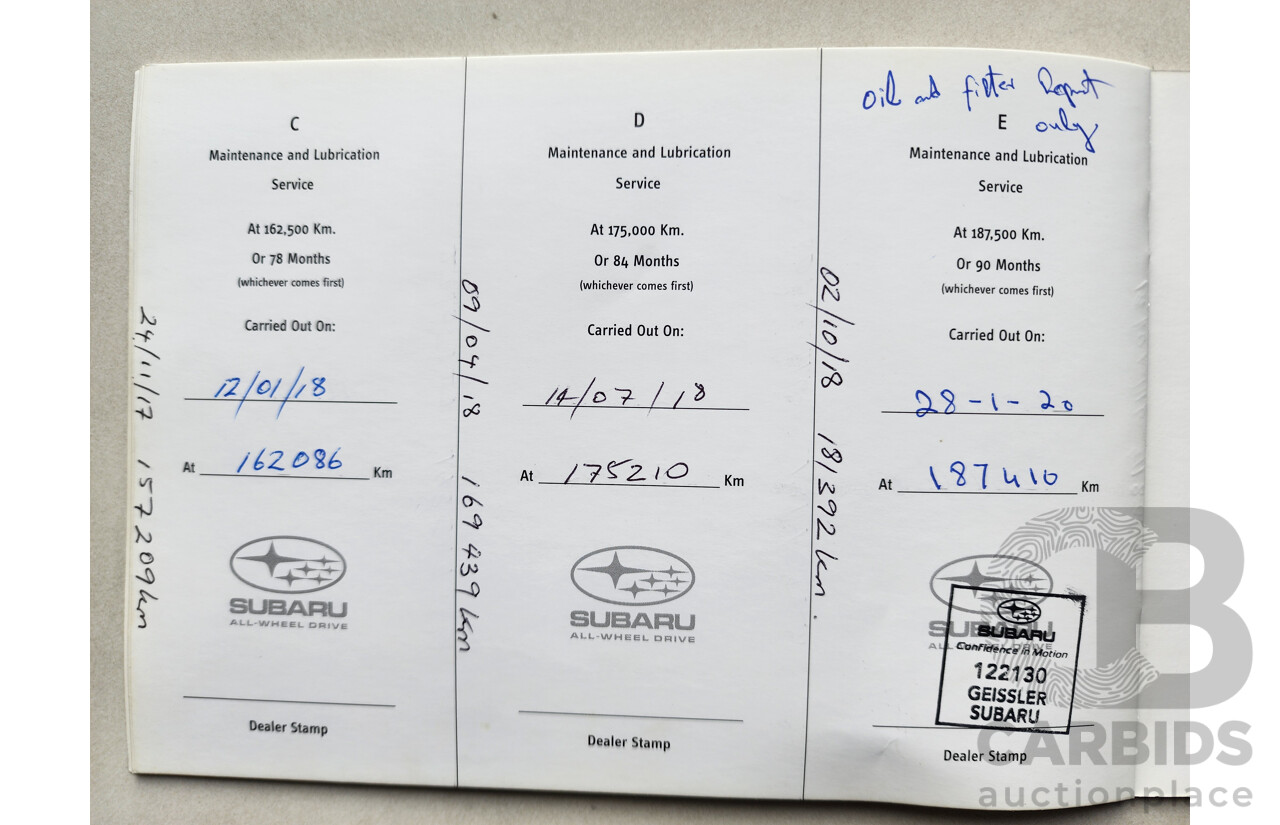 24/11/17 157209km
C
Maintenance and Lubrication
Service
At 162,500 Km.
Or 78 Months
(whichever comes first)
Carried Out On:
12/01/18
At 162086 Km
SUBARU
ALL-WHEEL DRIVE
Dealer Stamp
09/04/18 169439km
D
Maintenance and Lubrication
Service
At 175,000 Km.
Or 84 Months
(whichever comes first)
Carried Out On:
14/07/18
At 175210 Km
SUBARU
ALL-WHEEL DRIVE
Dealer Stamp
02/10/18 181392km.
oil and filter
only
E
Maintenance and Lubrication
Service
At 187,500 Km.
Or 90 Months
(whichever comes first)
Carried Out On:
28-1-20
At 187410 Km
SUBARU
Confidence in Motion
122130
GEISSLER
SUBARU
Dealer Stamp
CARBIDS
auctionplace